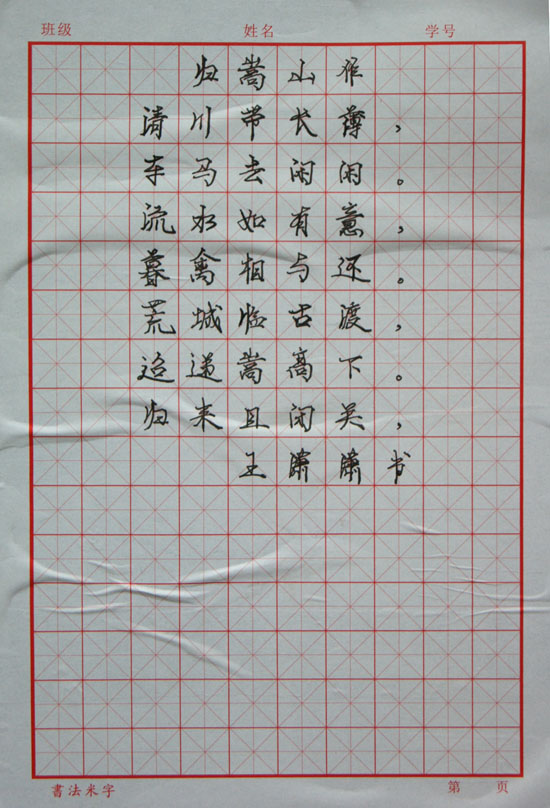 班级 姓名 学号
归嵩山作
清川带长薄，
车马去闲闲。
流水如有意，
暮禽相与还。
荒城临古渡，
迢递嵩高下。
归来且闭，
王潇潇书
書法米字 第 页